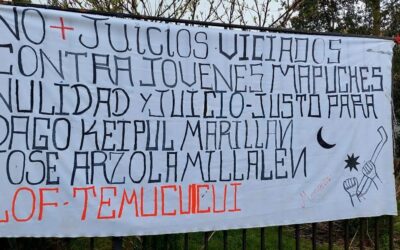 NO + JUICIOS VICIADOS
CONTRA JOVENES MAPUCHES
NULIDAD Y JUICIO-JUSTO PARA
DAGO KEIPUL MARILLAN
JOSE ARZOLA MILLALEN
LOF-TEMUCUICUI